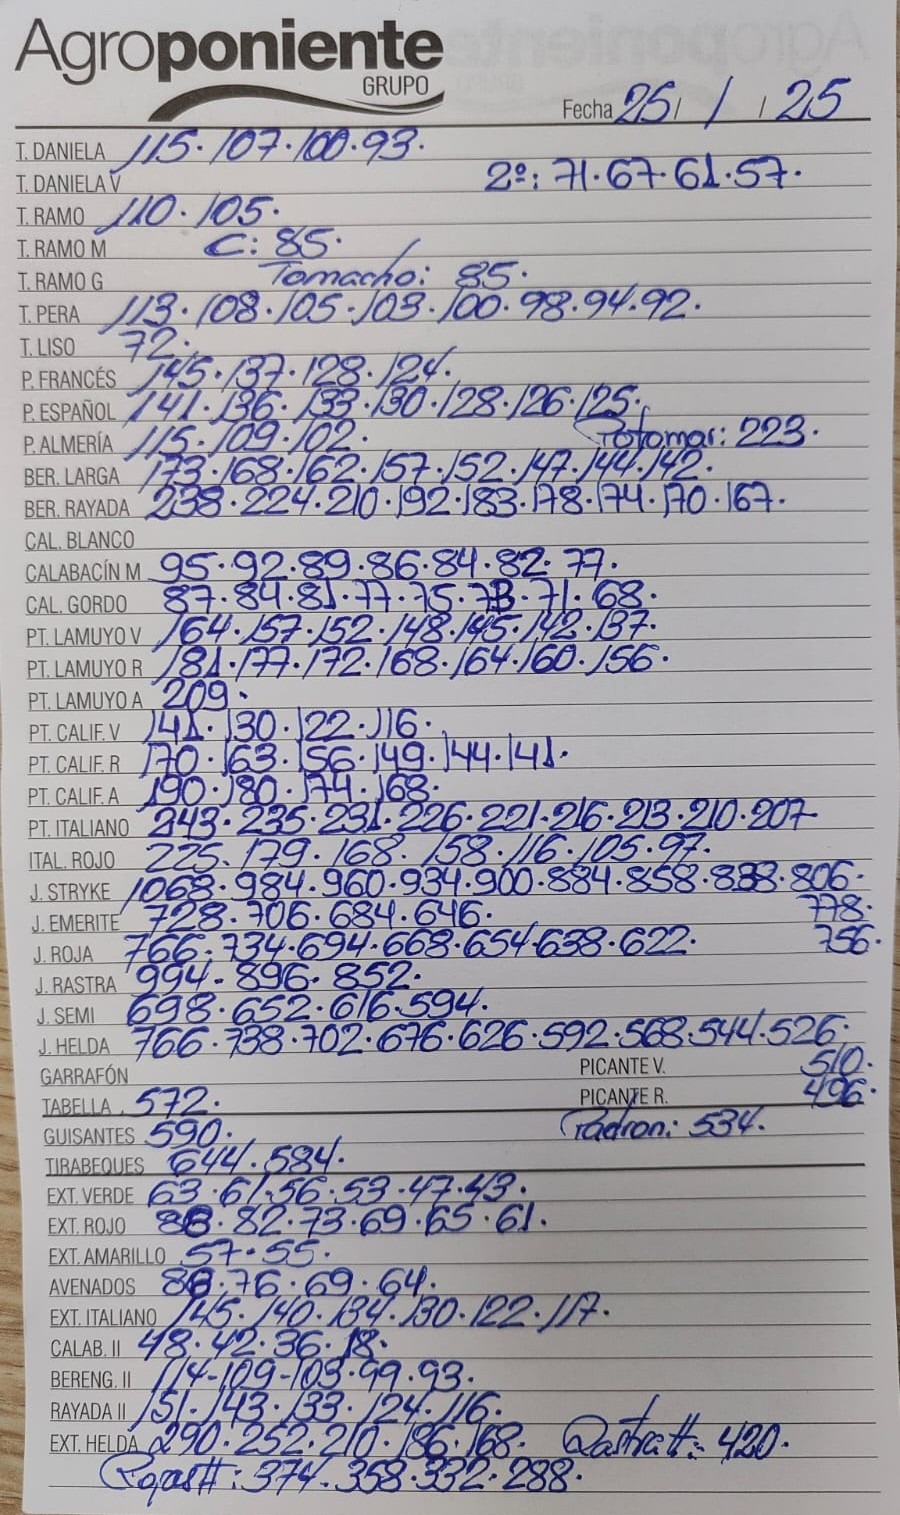 Agroponiente
GRUPO
Fecha 25 / 1 / 25
T. DANIELA 115.107.100.93.
T. DANIELA V 2º: 71.67.61.57.
T. RAMO 110.105.
T. RAMO M C: 85.
T. RAMO G Tomacho: 85.
T. PERA 113.108.105.103.100.98.94.92.
T. LISO 72.
P. FRANCÉS 145.137.128.124.
P. ESPAÑOL 141.136.133.130.128.126.125.
P. ALMERÍA 115.109.102. Potomar: 223.
BER. LARGA 173.168.162.157.152.147.144.142.
BER. RAYADA 238.224.210.192.183.178.174.170.167.
CAL. BLANCO
CALABACÍN M 95.92.89.86.84.82.77.
CAL. GORDO 87.84.81.77.75.73.71.68.
PT. LAMUYO V 164.157.152.148.145.142.137.
PT. LAMUYO R 181.177.172.168.164.160.156.
PT. LAMUYO A 209.
PT. CALIF. V 141.130.122.116.
PT. CALIF. R 170.163.156.149.144.141.
PT. CALIF. A 190.180.174.168.
PT. ITALIANO 243.235.231.226.221.216.213.210.207
ITAL. ROJO 225.179.168.158.116.105.97.
J. STRYKE 1068.984.960.934.900.884.858.838.806.
J. EMERITE 728.706.684.646. 778.
J. ROJA 766.734.694.668.654.638.622. 756.
J. RASTRA 994.896.852.
J. SEMI 698.652.616.594.
J. HELDA 766.738.702.676.626.592.568.544.526.
GARRAFÓN PICANTE V. 510.
TABELLA 572. PICANTE R. 496.
GUISANTES 590. Padron: 534.
TIRABEQUES 644.584.
EXT. VERDE 63.61.56.53.47.43.
EXT. ROJO 88.82.73.69.65.61.
EXT. AMARILLO 57.55.
AVENADOS 88.76.69.64.
EXT. ITALIANO 145.140.134.130.122.117.
CALAB. II 48.42.36.18.
BERENG. II 114-109-103.99.93.
RAYADA II 151.143.133.124.116.
EXT. HELDA 290.252.210.186.168. Rastra II: 420.
Rojas II: 374.358.332.288.